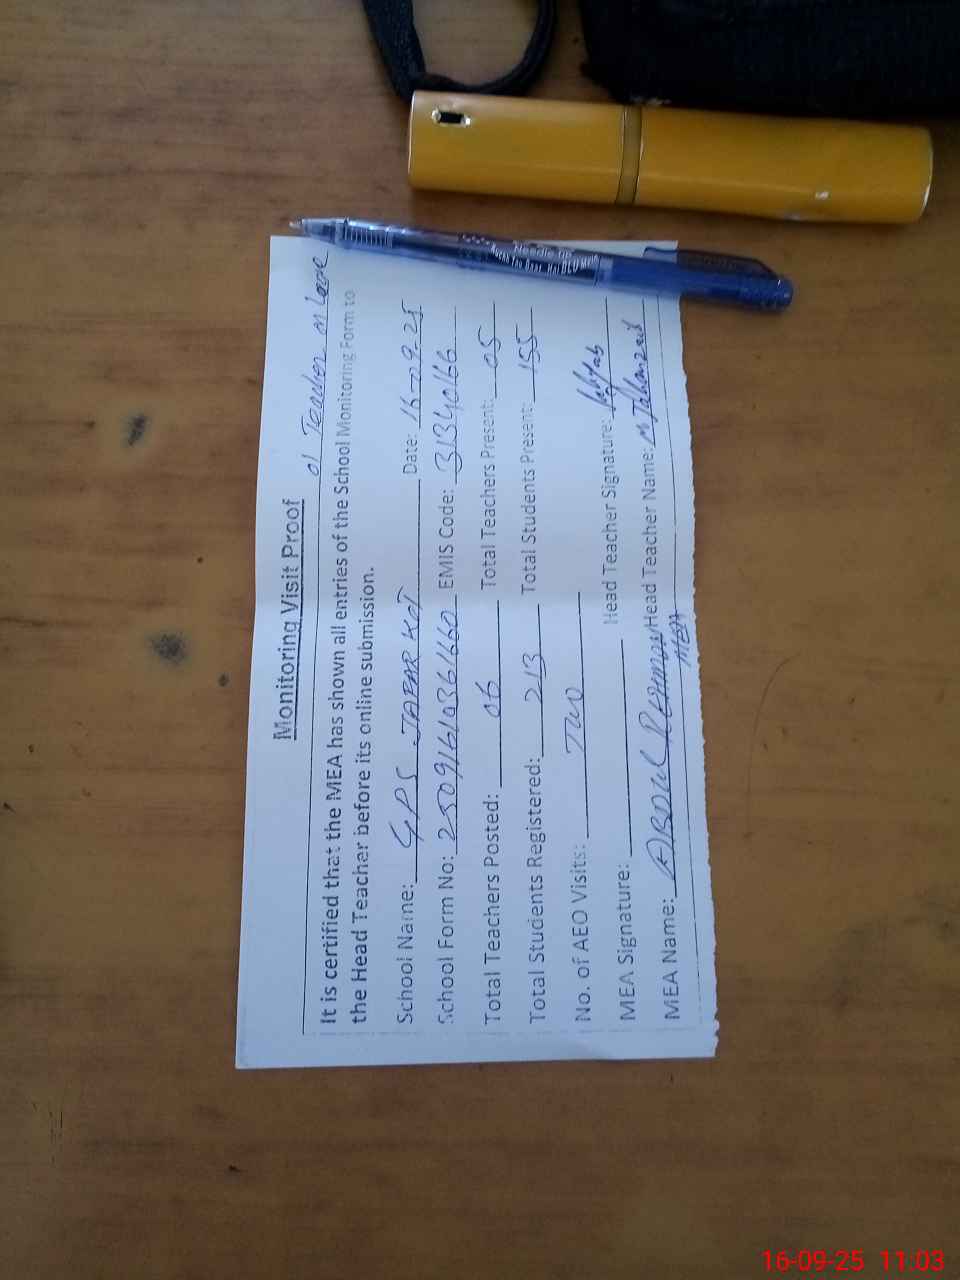 Monitoring Visit Proof
01 Teacher on leave
It is certified that the MEA has shown all entries of the School Monitoring Form to
the Head Teacher before its online submission.
School Name: GPS JAFAR KOT Date: 16-09-25
School Form No: EMIS Code: 31340166
Total Teachers Posted: 06 Total Teachers Present: 05
Total Students Registered: 213 Total Students Present: 155
No. of AEO Visits: Two
MEA Signature: Head Teacher Signature:
MEA Name: ABDUL REHMAN Head Teacher Name: M Jahanzaib
MEA
Needle tip
16-09-25 11:03